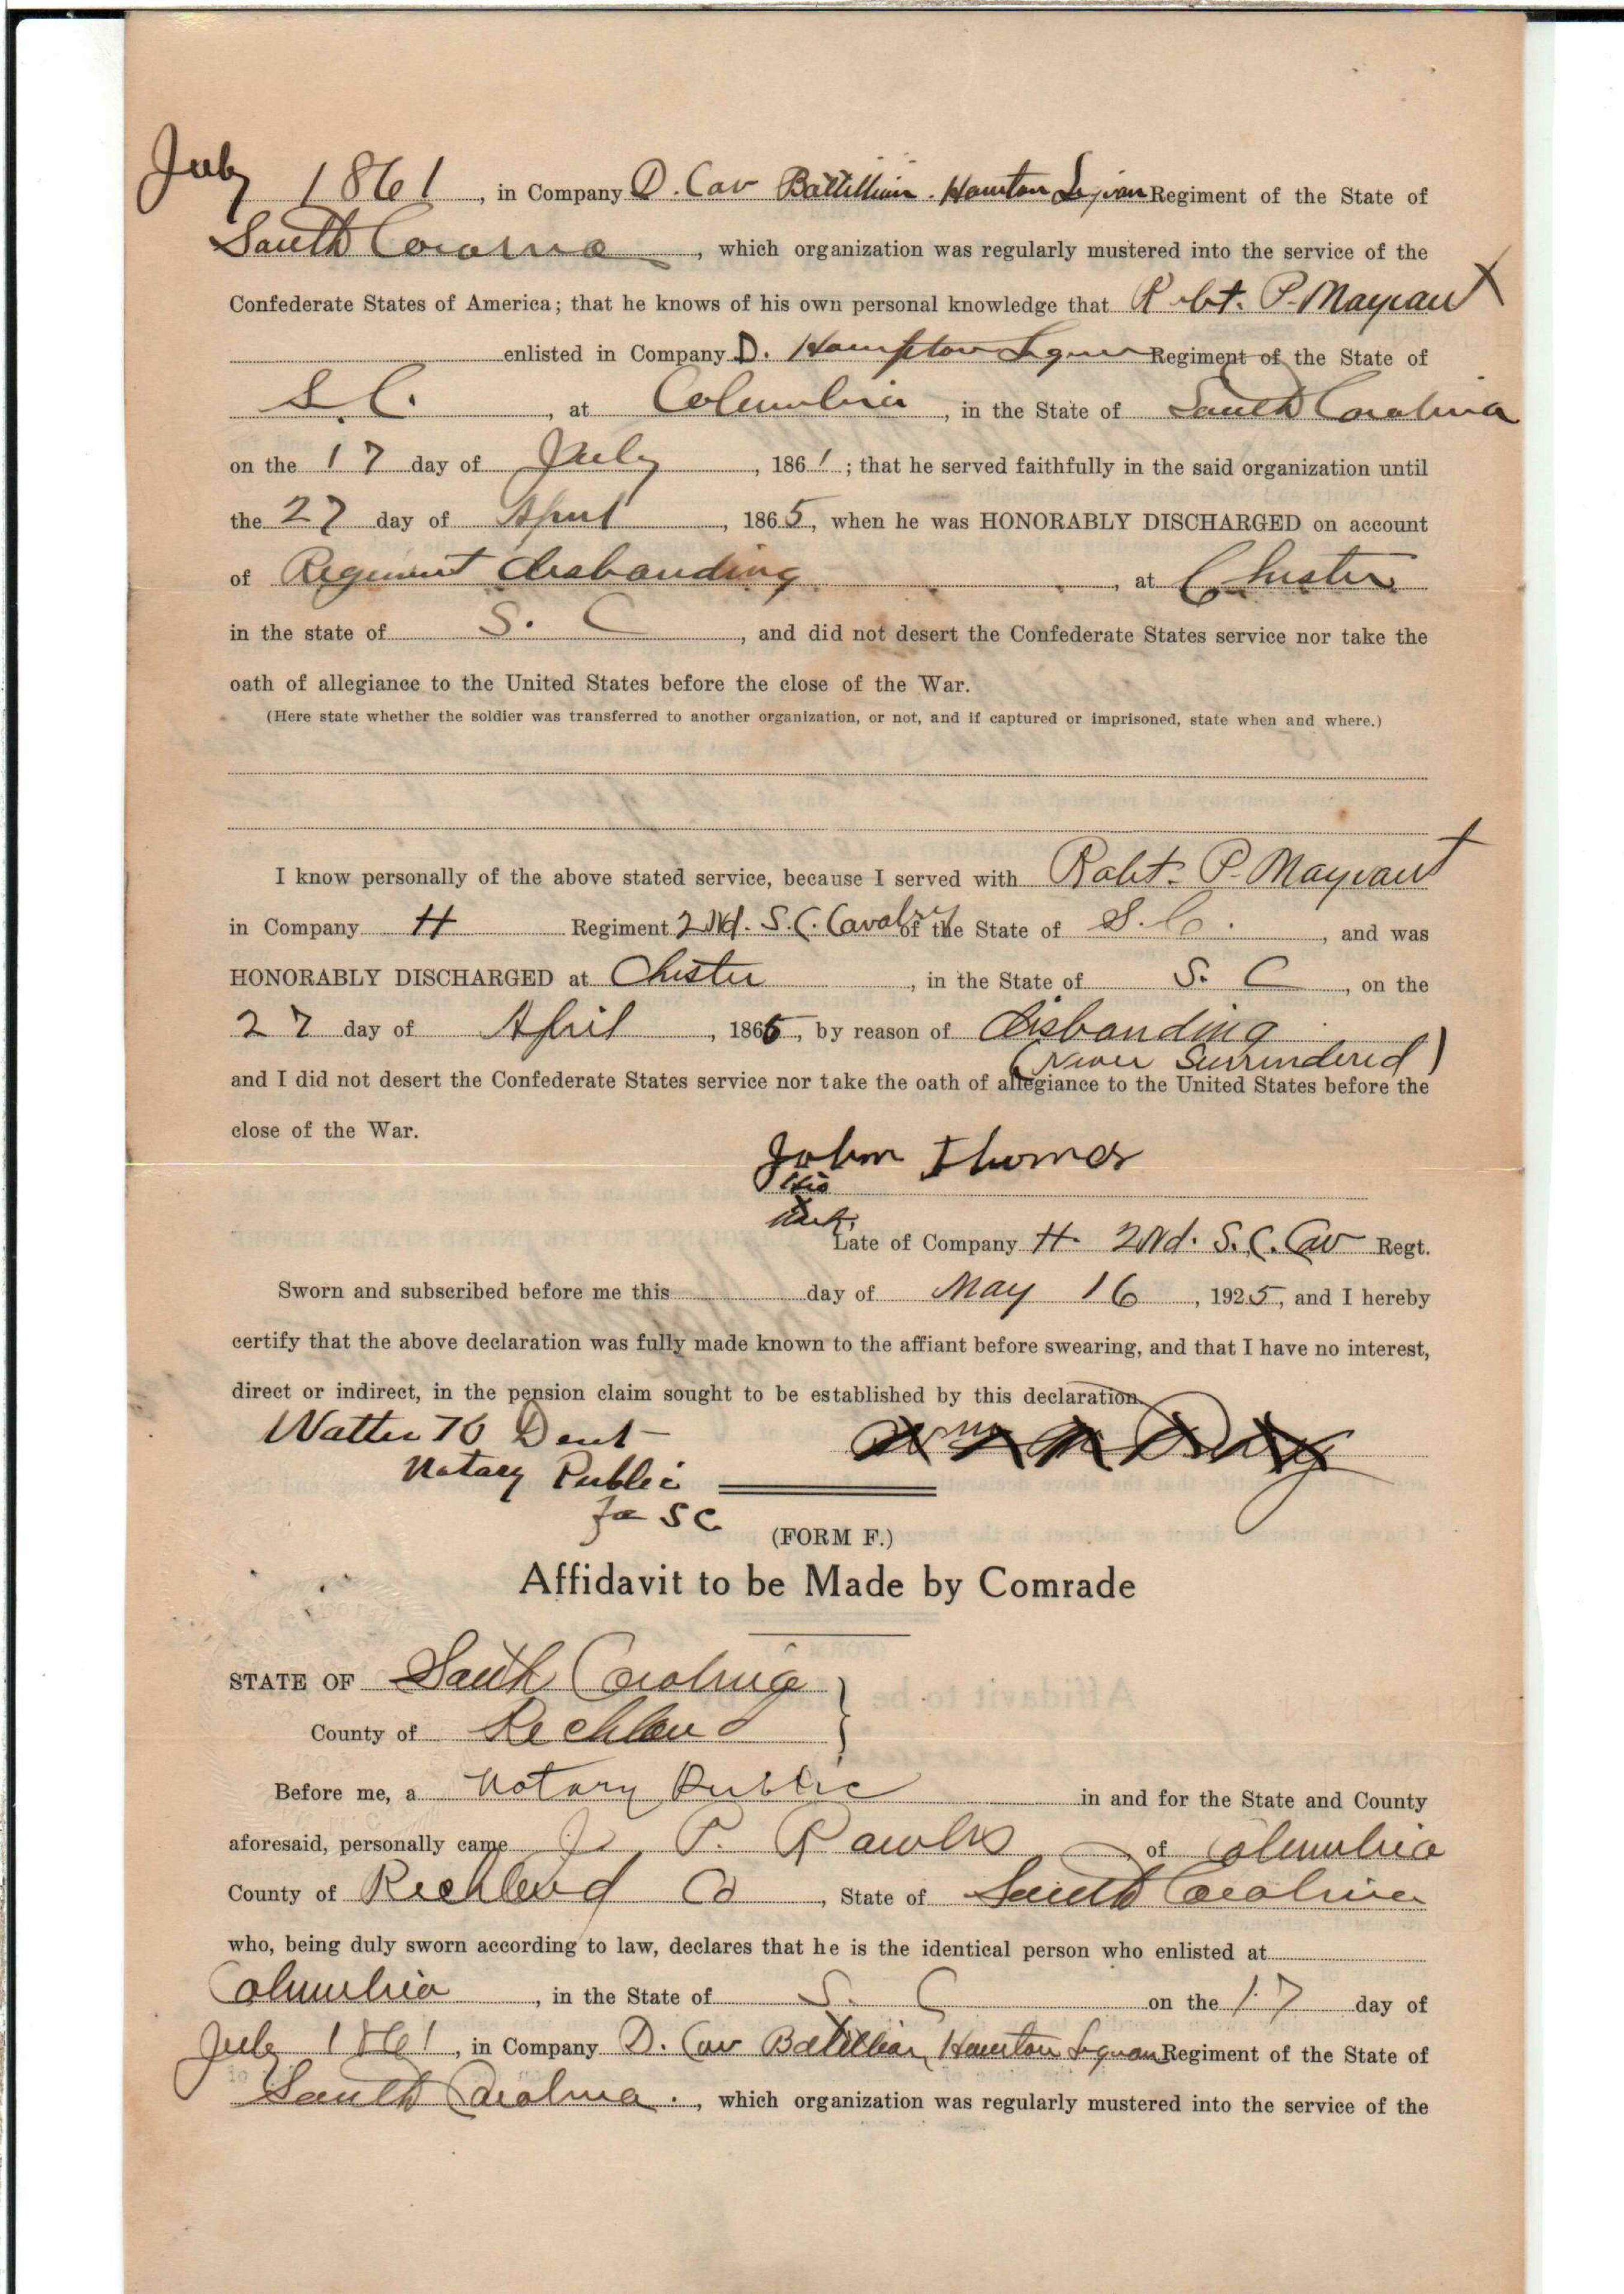 July 1861, in Company D. Cav Battillion. Hamton Legion Regiment of the State of
South Carolina, which organization was regularly mustered into the service of the
Confederate States of America; that he knows of his own personal knowledge that Robt. P. Mayrant
enlisted in Company D. Hampton Legion Regiment of the State of
S. C., at Columbia, in the State of South Carolina
on the 17 day of July, 1861; that he served faithfully in the said organization until
the 27 day of April, 1865, when he was HONORABLY DISCHARGED on account
of Regiment disbanding, at Chester
in the state of S. C, and did not desert the Confederate States service nor take the
oath of allegiance to the United States before the close of the War.
(Here state whether the soldier was transferred to another organization, or not, and if captured or imprisoned, state when and where.)
I know personally of the above stated service, because I served with Robt. P. Mayrant
in Company H Regiment 2Nd. S. C. Cavalry of the State of S. C., and was
HONORABLY DISCHARGED at Chester, in the State of S. C, on the
27 day of April, 1865, by reason of disbanding
(Never Surrindered)
and I did not desert the Confederate States service nor take the oath of allegiance to the United States before the
close of the War.
John Thomas
His
X
Mark.
Late of Company H. 2Nd. S. C. Cav Regt.
Sworn and subscribed before me this day of May 16, 1925, and I hereby
certify that the above declaration was fully made known to the affiant before swearing, and that I have no interest,
direct or indirect, in the pension claim sought to be established by this declaration.
Dent
Notary Public
for S C
(FORM F.)
Affidavit to be Made by Comrade
STATE OF South Carolina
County of Richland
Before me, a Notary Public in and for the State and County
aforesaid, personally came J. P. Rawls of Columbia
County of Richland Co, State of South Carolina
who, being duly sworn according to law, declares that he is the identical person who enlisted at
Columbia, in the State of S. C on the 17 day of
July 1861, in Company D. Cav Batillion, Hamton Legion Regiment of the State of
South Carolina., which organization was regularly mustered into the service of the